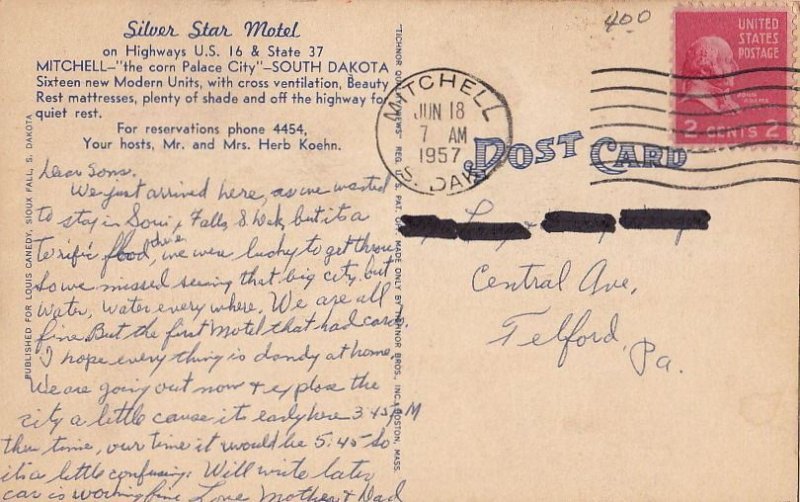 400
Silver Star Motel
on Highways U.S. 16 & State 37
MITCHELL—"the corn Palace City"—SOUTH DAKOTA
Sixteen new Modern Units, with cross ventilation, Beauty
Rest mattresses, plenty of shade and off the highway for
quiet rest.
For reservations phone 4454,
Your hosts, Mr. and Mrs. Herb Koehn.
UNITED
STATES
POSTAGE
JOHN
ADAMS
2 CENTS 2
MITCHELL
JUN 18
7 AM
1957
S. DAK.
POST CARD
PUBLISHED FOR LOUIS CANEDY, SIOUX FALL, S. DAKOTA
TICHNOR QUALITY VIEWS" REG. U. S. PAT. OFF. MADE ONLY BY TICHNOR BROS., INC., BOSTON, MASS.
Dear Sons.
We just arrived here, as we wanted
to stay in Soui, Falls, S Dak, but its a
Terific flood there, we were lucky to get throu
So we missed seeing that big city. but
water, water every where. We are all
fine. But the first Motel that had
I hope every thing is dandy at home,
We are going out now & explore the
city a little cause its early here 3:45 PM
their time, our time it would be 5:45 So
its a little confusing. Will write later
car is working fine Love Mother & Dad
Central Ave,
Telford, Pa.